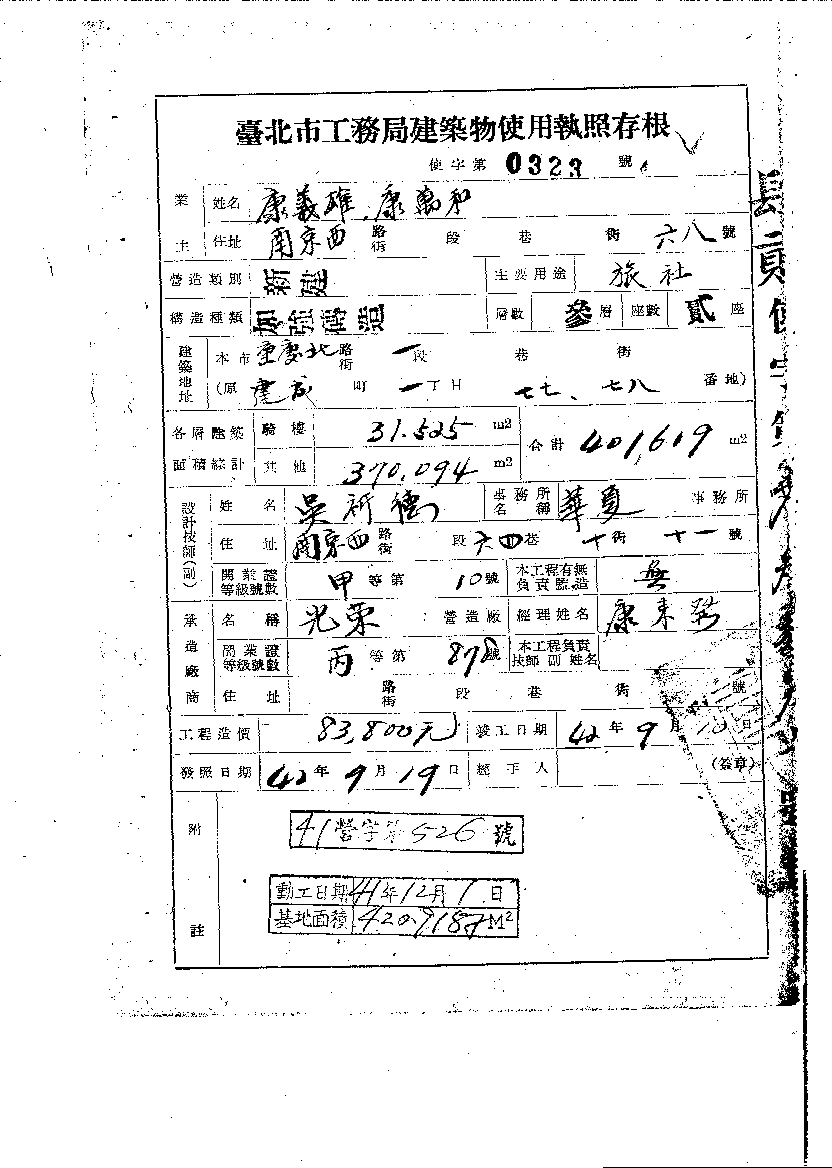 臺北市工務局建築物使用執照存根
使字第 0323 號
業主 姓名 康義雄.康萬和
住址 南京西 路街 段 巷 街 六八 號
營造類別 新建 主要用途 旅社
構造種類 加強磚造 層數 參層 座數 貳座
建築地址 本市 重慶北 路街 一段 巷 街
(原 建成 町 一丁目 七七、七八 番地)
各層建築面積總計 騎樓 31.525 m2 合計 401,619 m2
其他 370.094 m2
設計技師(副) 姓名 吳祈德 事務所名稱 華夏 事務所
住址 南京西 路街 段 六四巷 十街 十一號
開業證等級號數 甲等第 10號 本工程有無負責監造 無
承造廠商 名稱 光榮 營造廠 經理姓名 康來
開業證等級號數 丙等第 878號 本工程負責技師副姓名
住址 路街 段 巷 街 號
工程造價 83,800元 竣工日期 42年9月10日
發照日期 42年9月19日 經手人 (簽章)
附註
41營字第526號
動工日期 41年12月1日
基地面積 M2